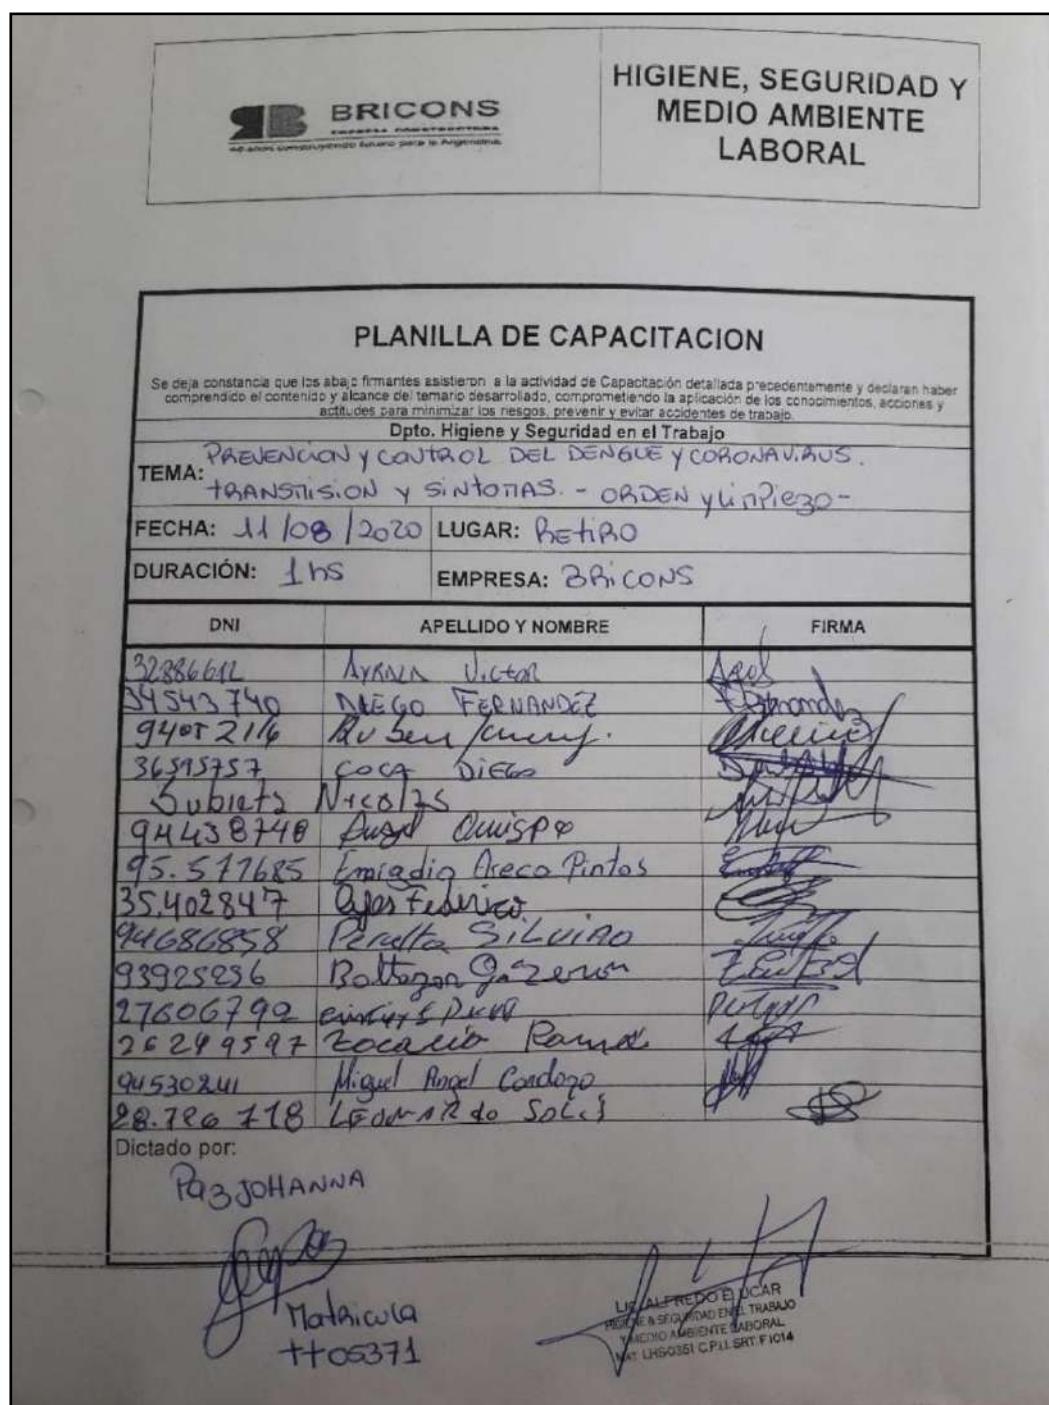 BRICONS
EMPRESA CONSTRUCTORA
40 años construyendo futuro para la Argentina.
HIGIENE, SEGURIDAD Y
MEDIO AMBIENTE
LABORAL
PLANILLA DE CAPACITACION
Se deja constancia que los abajo firmantes asistieron a la actividad de Capacitación detallada precedentemente y declaran haber
comprendido el contenido y alcance del temario desarrollado, comprometiendo la aplicación de los conocimientos, acciones y
actitudes para minimizar los riesgos, prevenir y evitar accidentes de trabajo.
Dpto. Higiene y Seguridad en el Trabajo
TEMA: PREVENCION y CONTROL DEL DENGUE y CORONAVIRUS.
TRANSMISION y SINTOMAS. - ORDEN y LIMPIEZA -
FECHA: 11/08/2020 LUGAR: RETIRO
DURACIÓN: 1 hs EMPRESA: BRICONS
DNI APELLIDO Y NOMBRE FIRMA
32886612 AYRALA VICTOR
34543740 DIEGO FERNANDEZ Fernandez
Ruben
36595757 COCA DIEGO
Subieta Nicolas
94438748 Angel Quispe
95.577685 Emigdio Areco Pintos
35.402847 Federico
94686858 Peralta SILVINO
93925296 Baltazar
27606790
26249597 Ramon
94530241 Miguel Angel Cardozo
28.786 718 LEONARDO SOLIS
Dictado por:
PAZ JOHANNA
Matricula
TT05371
LIC. ALFREDO E. UCAR
HIGIENE & SEGURIDAD EN EL TRABAJO
Y MEDIO AMBIENTE LABORAL
MAT. LHS-0351 C.P.I.I. SRT. F 1014